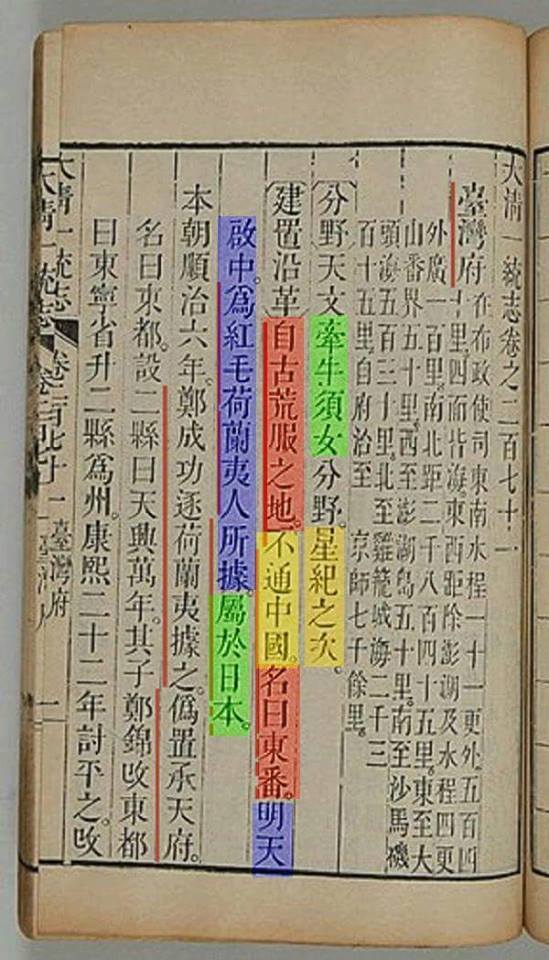 大清一統志卷之二百七十一
臺灣府在布政使司東南水程一十一更外。五百四
十里。四面皆海。東西距除澎湖及水程四更
外廣一百里。南北距二千八百四十五里。東至大
山番界五十里。西至澎湖島五十里。南至沙馬磯
頭海五百三十里。北至雞籠城海二千三
百十五里。自府治至 京師七千餘里。
〔分野天文〕牽牛須女分野。星紀之次。
〔建置沿革〕自古荒服之地。不通中國。名曰東番。明天
啟中。為紅毛荷蘭夷人所據。屬於日本。
本朝順治六年。鄭成功逐荷蘭夷據之。偽置承天府。
名曰東都。設二縣曰天興萬年。其子鄭錦改東都
曰東寧省升二縣為州。康熙二十二年討平之。改
大清一統志 臺灣府 一
大清一統志